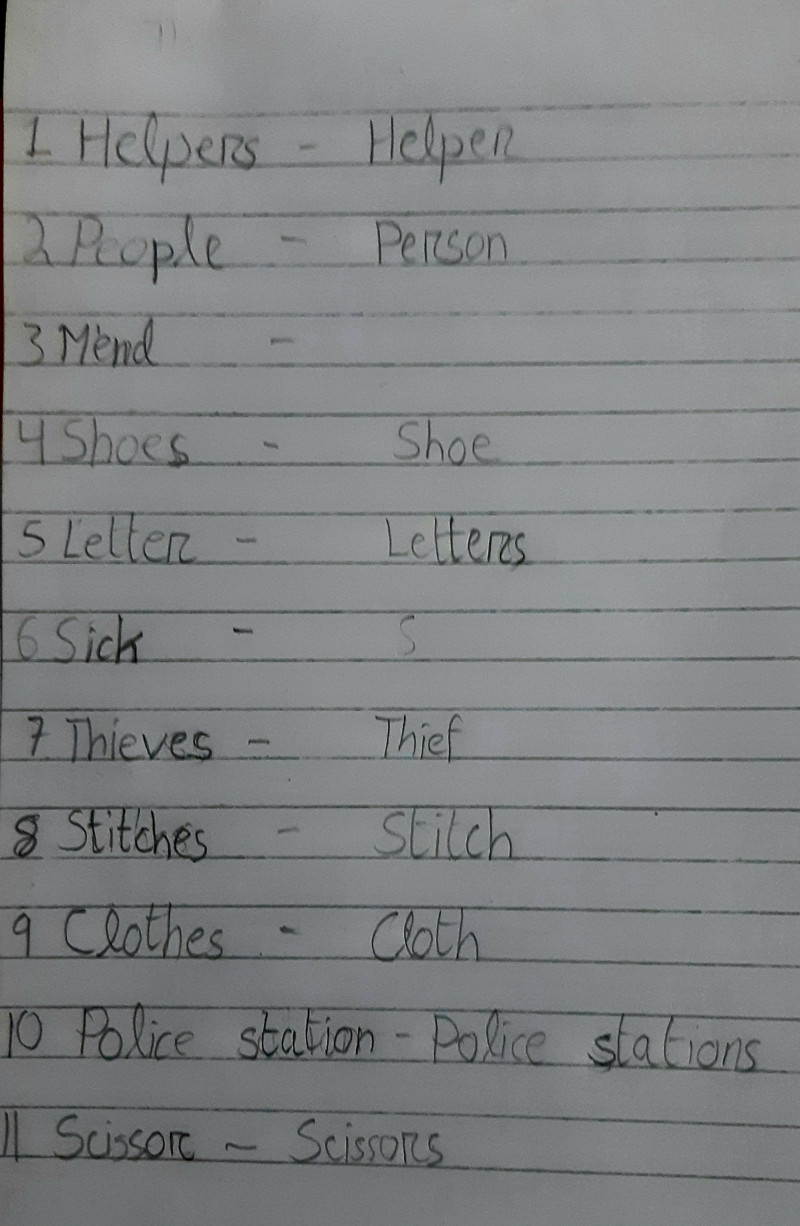 1 Helpers - Helper
2 People - Person
3 Mend -
4 Shoes - Shoe
5 Letter - Letters
6 Sick - S
7 Thieves - Thief
8 Stitches - Stitch
9 Clothes - Cloth
10 Police station - Police stations
11 Scissor - Scissors